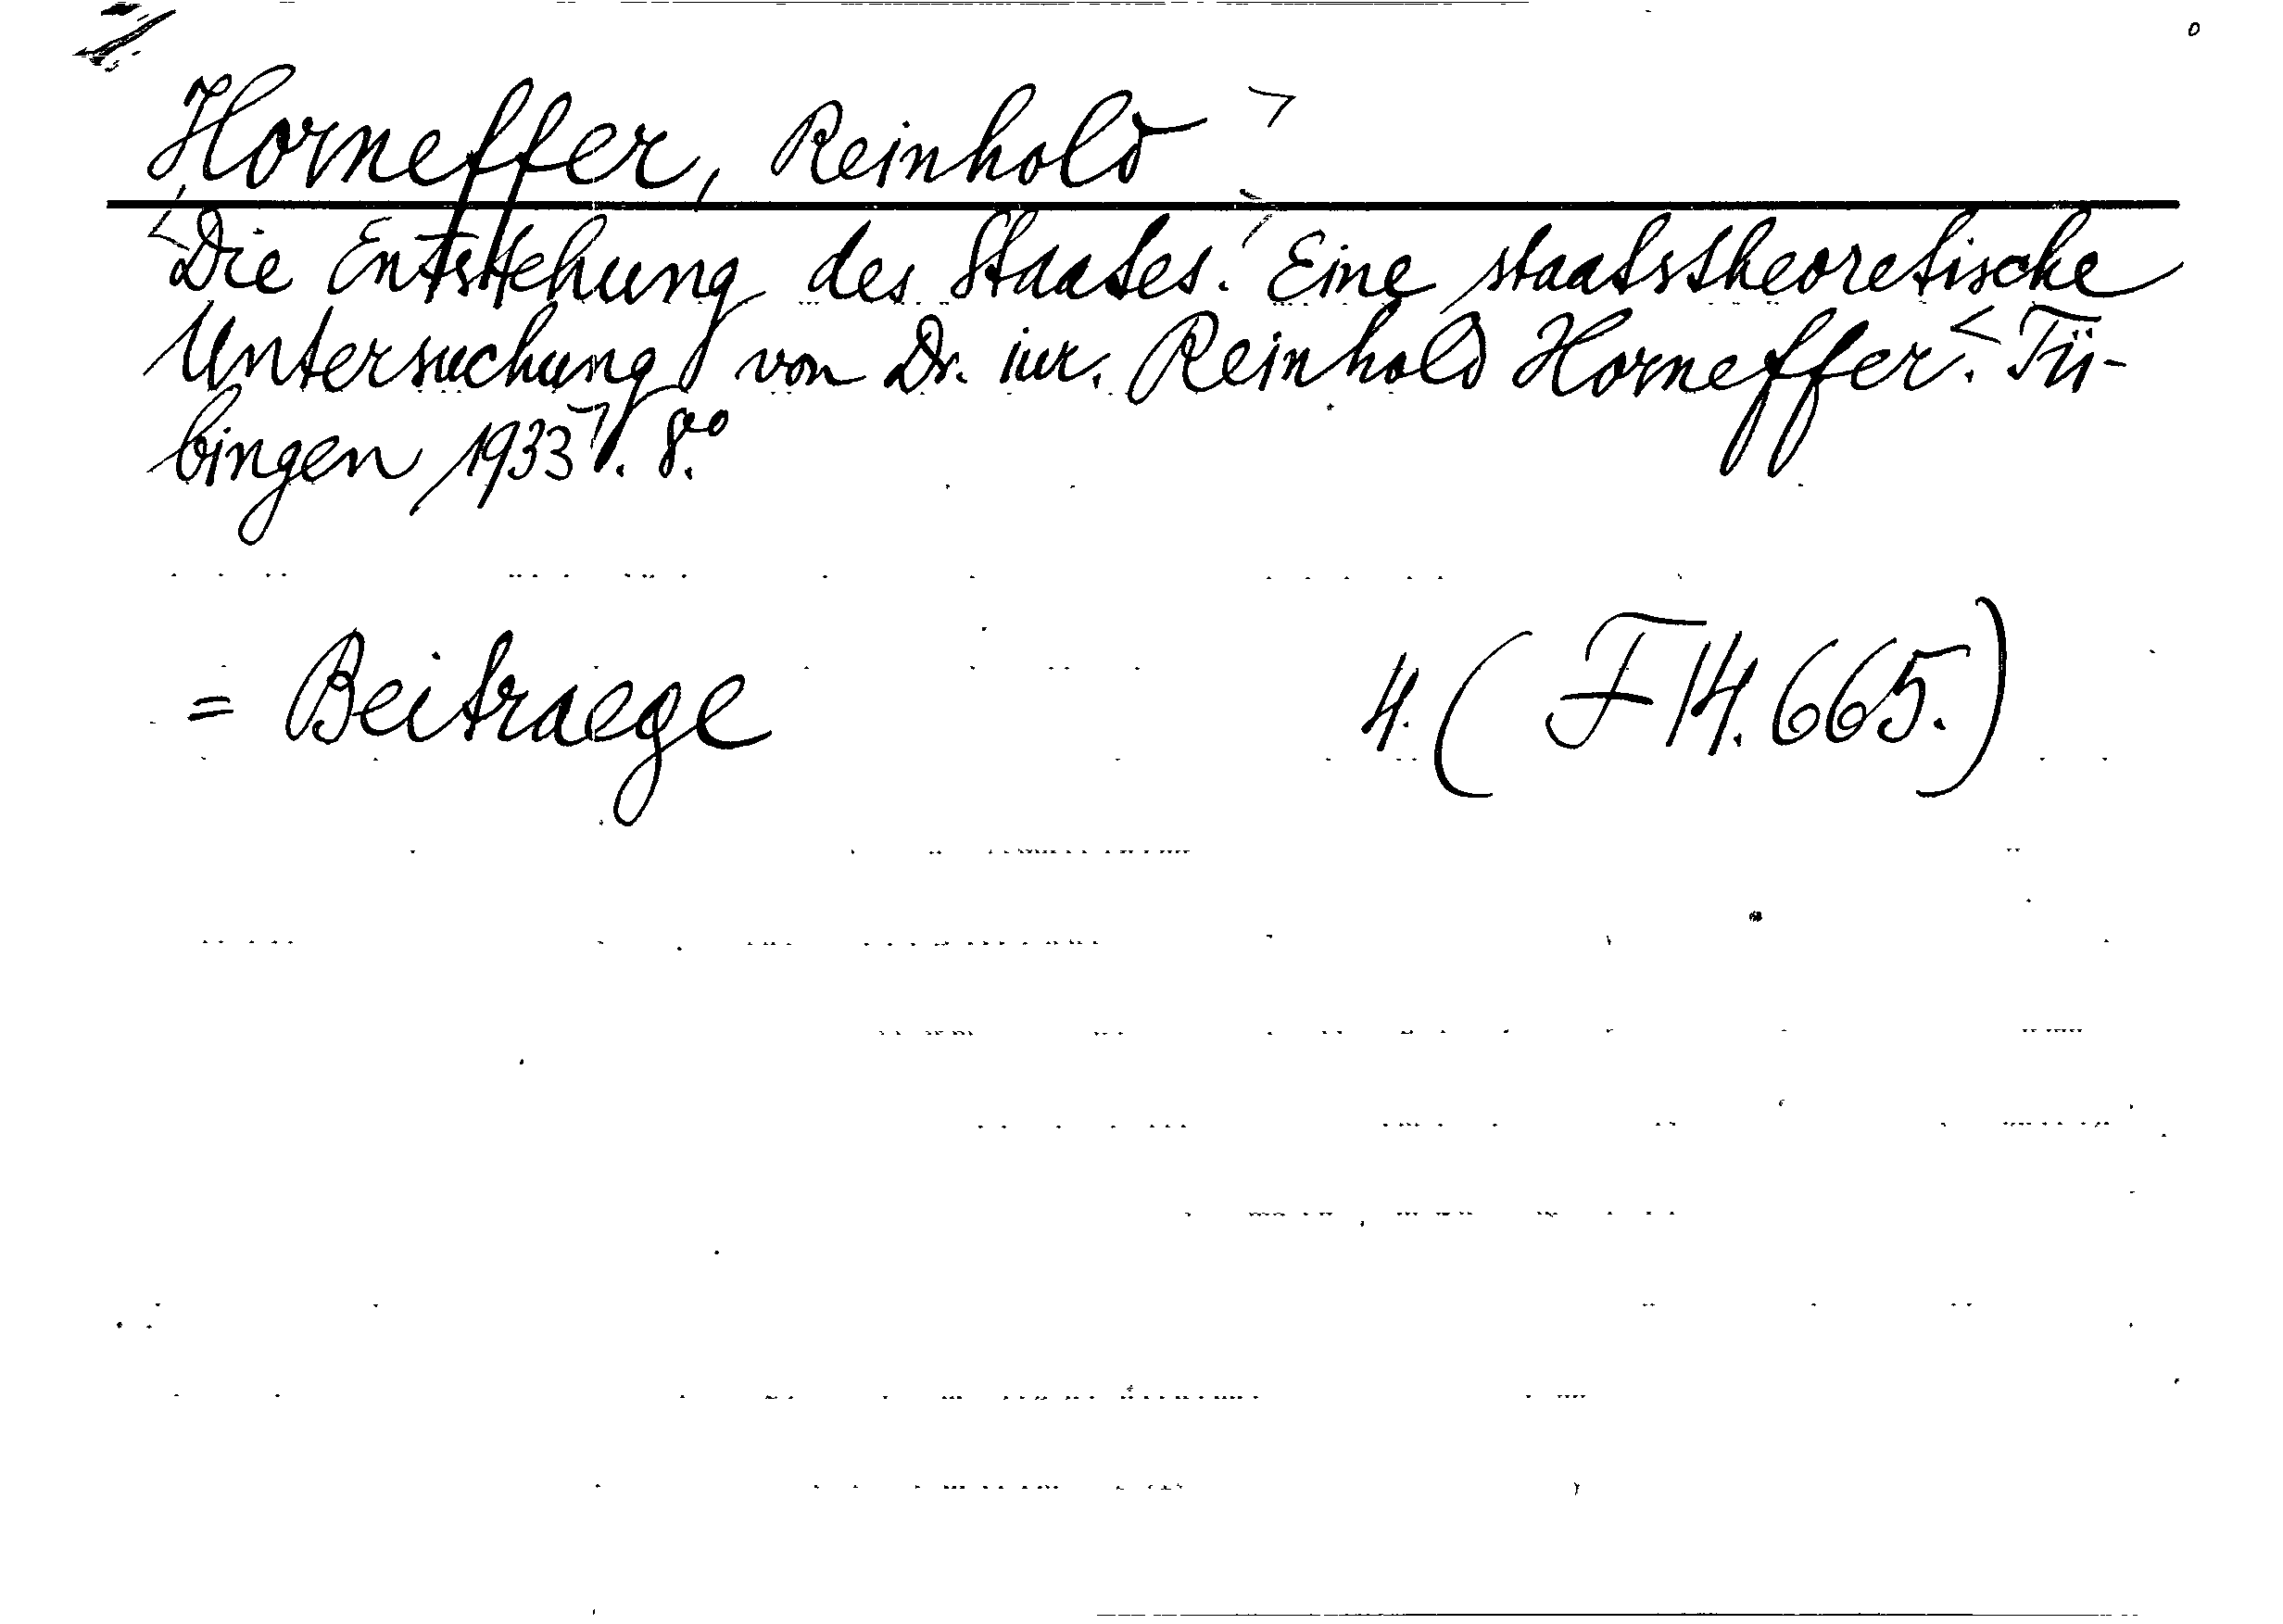 Horneffer, Reinhold
Die Entstehung des Staates. Eine staatstheoretische
Untersuchung von Dr. iur. Reinhold Horneffer. Tü-
bingen 1933. 8.º
= Beitraege 4. (F 14.665.)